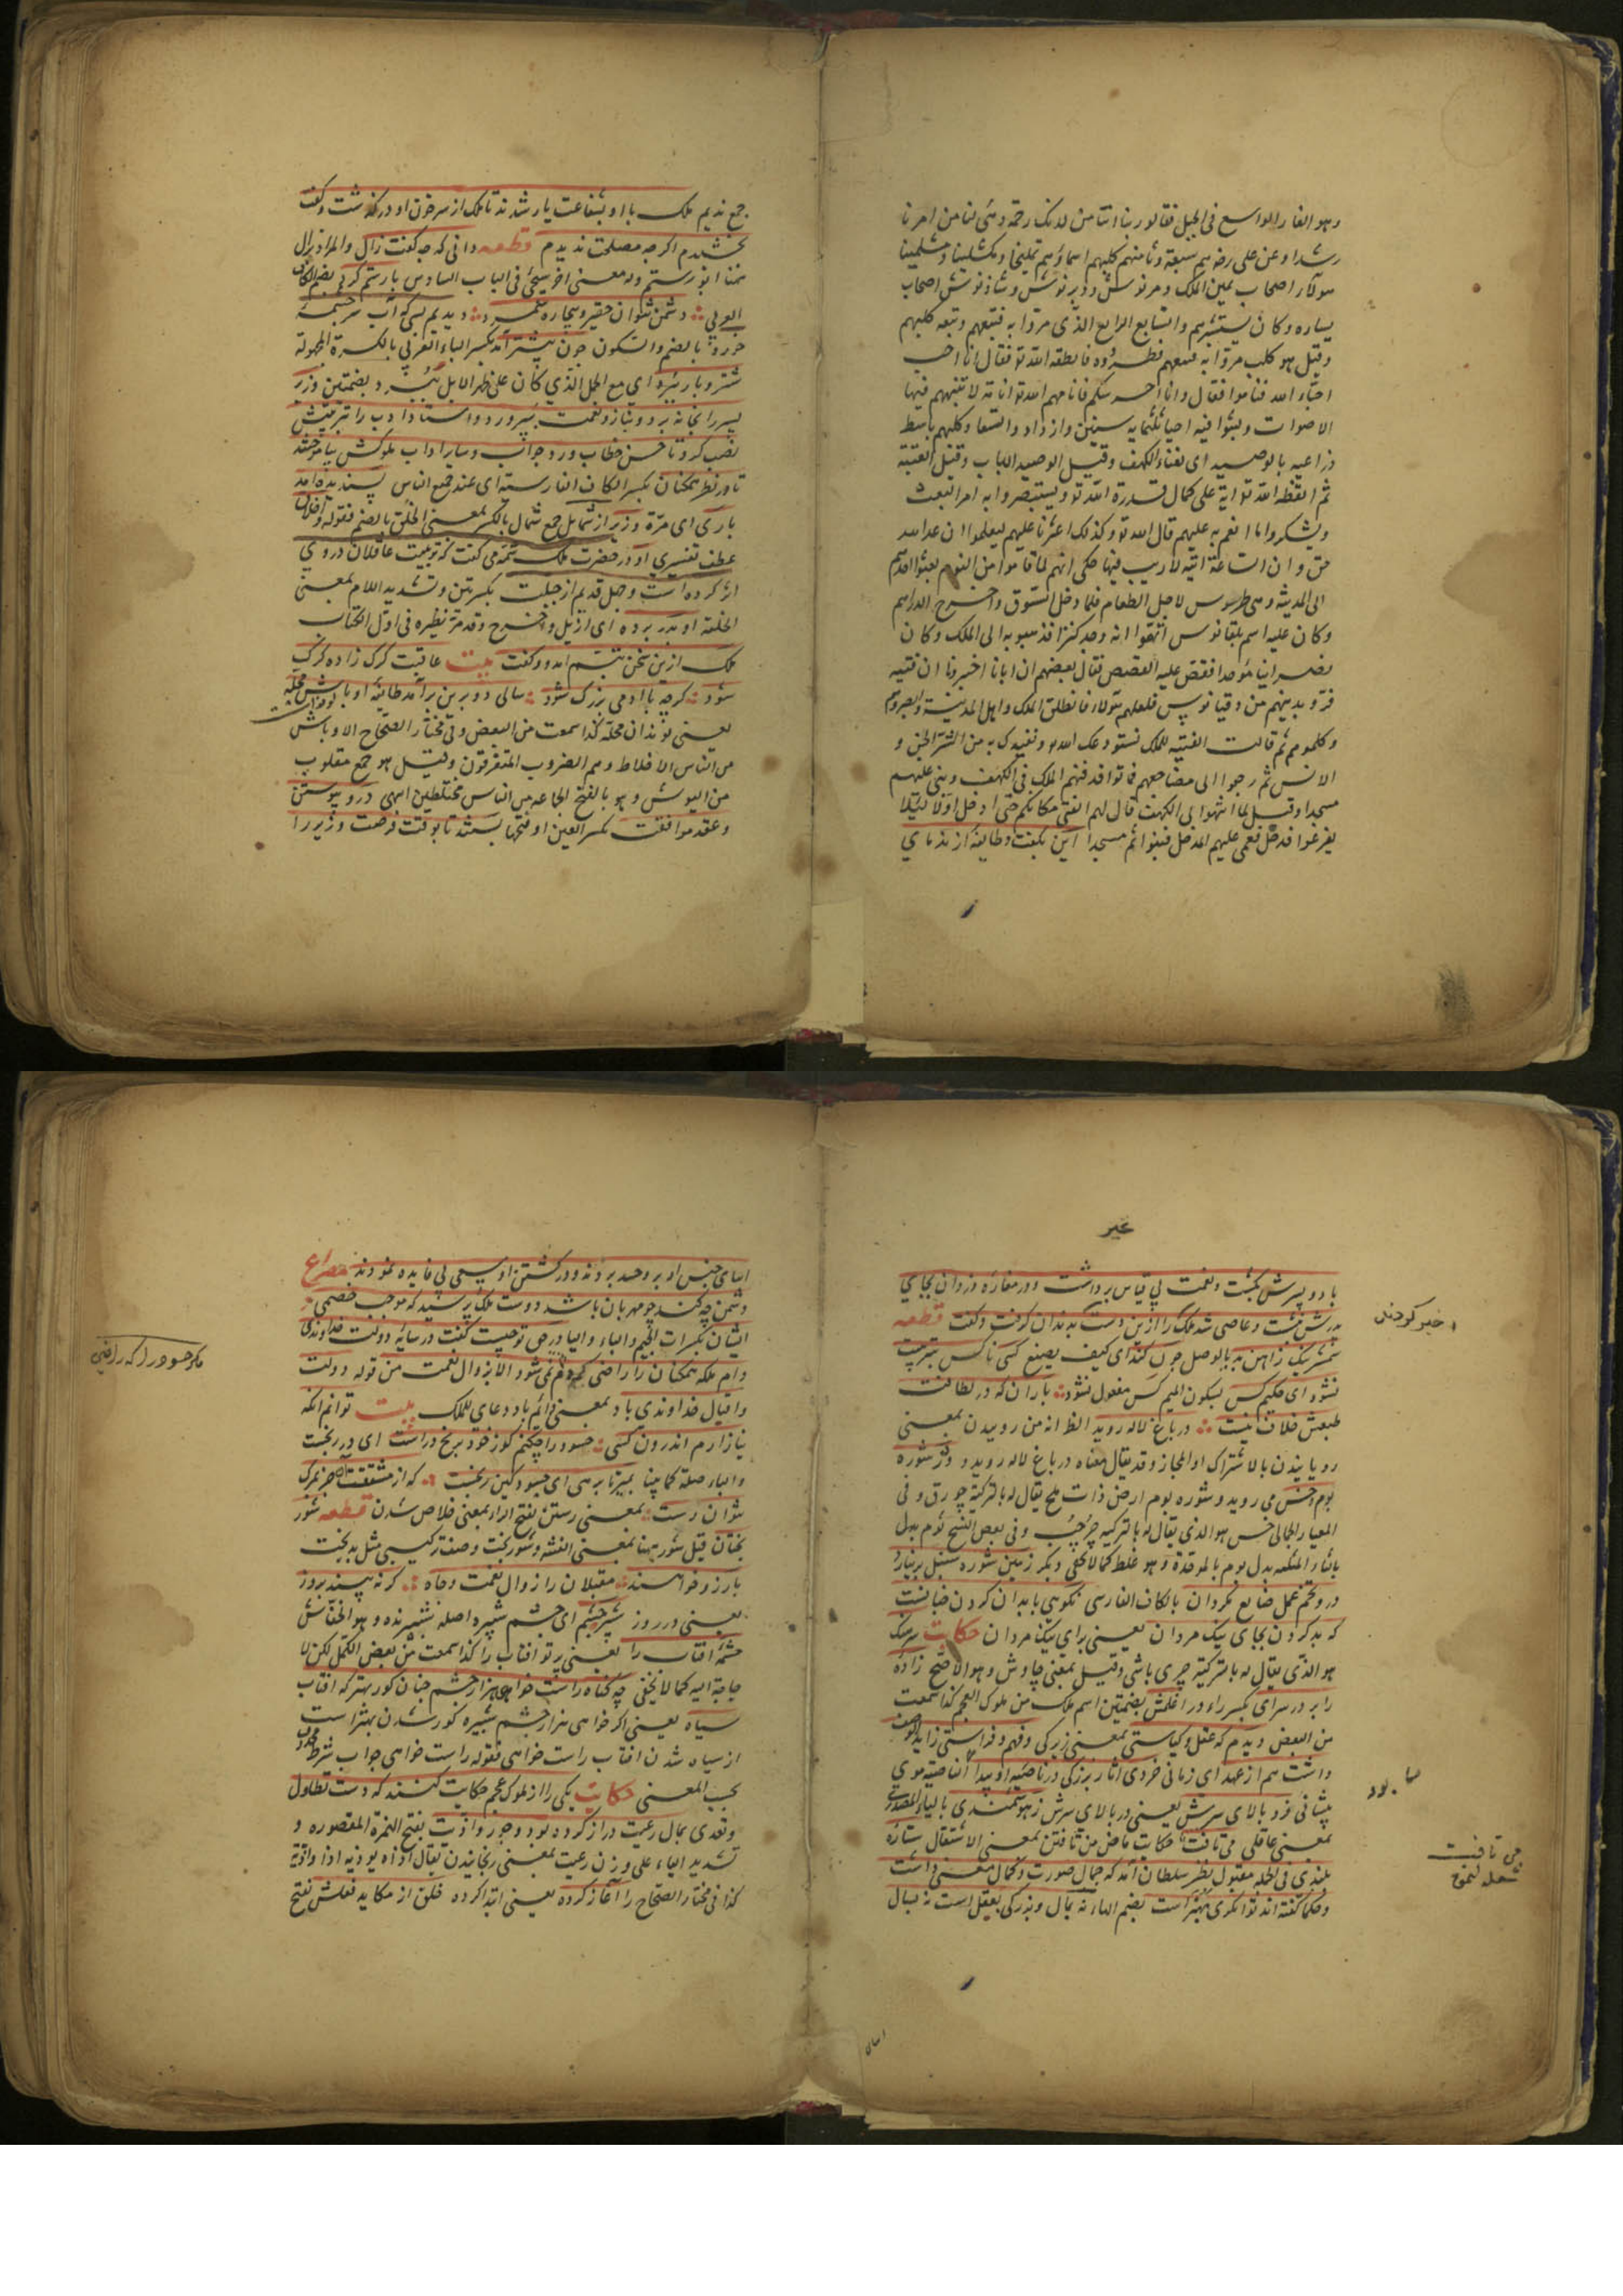 وهو الغار الواسع فى الجبل فقالوا ربنا اتنا من لدنك رحمة وهيئ لنا من امرنا
رشدا وعن على رضه هم سبعة وثامنهم كلبهم اسماؤهم تمليخا ومكشلينا ومشلينا
هولاء اصحاب يمين الملك ومرنوش ودبرنوش وشاذنوش اصحاب
يساره وكان يستشيرهم والسابع الراعى الذى مروا به فتبعهم وتبعه كلبهم
وقيل هو كلب مروا به فتبعهم فطردوه فانطقه الله تو فقال انا احب
احباء الله فناموا فقال وانا احرسكم فانامهم الله تو انامة لا تنبههم فيها
الاصوات ولبثوا فيه احياء ثلثماية سنين وازداد واتسعا وكلبهم باسط
ذراعيه بالوصيد اى بفناء الكهف وقيل الوصيد الباب وقيل العتبة
ثم ايقظ الله تو اية على كمال قدرة الله تو وليستبصروا به امر البعث
ويشكروا ما انعم به عليهم قال الله تو وكذلك اعثرنا عليهم ليعلموا ان وعد الله
حق وان الساعة اتية لا ريب فيها حكى انهم لما قاموا من النوم بعثوا احدهم
الى المدينة وهى طرسوس لاجل الطعام فلما دخل السوق واخرج الدراهم
وكان عليه اسم دقيانوس اتهموا انه وجد كنزا فذهبوا به الى الملك وكان
نصرانيا موحدا فقص عليه القصص فقال بعضهم ان اباءنا اخبرونا ان فتية
فروا بدينهم من دقيانوس فلعلهم هولاء فانطلق الملك واهل المدينة وابصروهم
وكلموهم ثم قالت الفتية للملك نستودعك الله تو ونعيذك به من شر الجن و
الانس ثم رجعوا الى مضاجعهم فماتوا فدفنهم الملك فى الكهف وبنى عليهم
مسجدا وقيل لما انتهوا الى الكهف قال لهم الفتى مكانكم حتى ادخل اولا لئلا
يفزعوا فدخل فعمى عليهم المدخل فبنوا ثم مسجدا اين بكفت وطايفه از ندماي
جمع نديم ملك با او بشفاعت يار شدند تا ملك از سر خون او در گذشت وگفت
بخشيدم اگرچه مصلحت نديدم قطعه دانى كه چه گفت زال والمراد بزال
ههنا ابو رستم وله معنى اخر سيجئ فى الباب السادس با رستم گرد بضم الكاف
العربي دشمن نتوان حقير وبيچاره شمرد ديديم بسى كه آب سرچشمه
خورد بالضم والسكون چون بيشتر آمد بكسر الباء العربى بالكسرة المجهولة
شتر وبار ببرد اى مع الحمل الذي كان على ظهر الابل ببرد وبضمتين وزير
پسر را بخانه برد وبناز ونعمت بپرورد واستاد ادب را بتربيتش
نصب كرد تا حسن خطاب ورد جواب وساير اداب ملوكش بياموختند
تا در نظر همگنان بكسر الكاف الفارسية اى عند جمع الناس پسنديده آمد
بارى اى مرة وزير از شمايل جمع شمال بالكسر بمعنى الخلق بالضم فقوله واخلاق
عطف تفسيري او در حضرت ملك شمه مى گفت كه تربيت عاقلان دروي
اثر كرده است وجهل قديم از جبلت بكسرتين وتشديد اللام بمعنى
الخلقة او بدر برده اى ازيل واخرج وقد مر نظيره فى اول الكتاب
ملك ازين سخن تبسم امد وگفت بيت عاقبت گرگ زاده گرگ
شود گرچه با ادمى بزرگ شود سالى دو برين برآمد طايفه اوباش محله
يعنى نوندان محله كذا سمعت من البعض وفى مختار الصحاح الاوباش
من الناس الاخلاط وهم الضروب المتفرقون وقيل هو جمع مقلوب
من البوش وهو بالفتح الجماعة من الناس مختلطين انتهى درو پيوستن
وعقد موافقت بكسر العين او فتحها بستند تا بوقت فرصت وزير را
عير
با دو پسرش بكشت ونعمت بي قياس برداشت ودر مغاره دزدان بجاي
پدرش بنشست وعاصى شد ملك را ازين دست بدندان گرفت وگفت قطعه
شمشير نيك ز اهن بد بالوصل چون كند اى كيف يصنع كسى ناكس بتربيت
نشود اى حكيم كس بسكون الميم كس مفعول نشود باران كه در لطافت
طبعش خلاف نيست در باغ لاله رويد الظ انه من روييدن بمعنى
روياييدن بالاشتراك او المجاز وقد يقال معناه در باغ لاله رويد ودر شوره
بوم وخس مي رويد وشوره بوم ارض ذات ملح يقال له بالتركية چورق وفى
المعيار الجمالى خس هو الذى يقال له بالتركيه چرچپ وفى بعض النسخ ثوم بدل
بالثاء المثلثة بدل بوم بالموحدة وهو غلط كما لا يخفى ديگر زمين شوره سنبل بر نيارد
درو تخم عمل ضايع مگردان بالكاف الفارسى نكويي با بدان كردن چنانست
كه بد كردن بجاى نيك مردان يعنى براى نيك مردان حكايت سرهنگ
هو الذى يقال له بالتركية چرى باشى وقيل بمعنى چاوش وهو الاصح زاده
را بر در سراى بكسر راء در اغلمش بضمتين اسم ملك من ملوك العجم كذا سمعت
من البعض ديدم كه عقل وكياستى بمعنى زيركى وفهم وفراستى زايد الوصف
داشت هم از عهد اى زمانى خردى اثار بزرگى در ناصيه او پيدا الناصية موى
پيشانى فرد بالاى سرش يعنى در بالاى سرش زهوشمندى بالياء المصدرى
بمعنى عاقلى مى تافت حكايت ماض من تافتن بمعنى الاشتعال ستاره
بلندى فى الجمله مقبول نظر سلطان آمد كه جمال صورت وكمال معنى داشت
وحكما گفته اند توانگرى بهنر است بضم الهاء نه بمال وبزرگى بعقل است نه بسال
اخير كوجندن
مى تافت
شعله لنمق
ابناى جنس او بر وحسد بردند ودر كشتن او سعى بى فايده نمودند مصراع
دشمن چه كند چو مهربان باشد دوست ملك پرسيد كه موجب خصمى
ايشان بكسرات الجيم والباء والياء در حق تو چيست گفت در سايه دولت خداوندى
دام ملكه همگنان را راضى كردم نمى شود الا بزوال نعمت من قوله دولت
واقبال خداوندى باد بمعنى دائم باد دعاى للملك بيت توانم آنكه
نيازارم اندرون كسى حسود را چكنم كوز خود برنج درست اى در رنجست
والباء صلة كما بينا بمير تا برهى اى حسود كين رنجيست كه از مشقت او جز بمرگ
نتوان رست بمعنى رستن بفتح الراء بمعنى خلاص شدن قطعه شور
بختان قيل شور ههنا بمعنى الفتنه وشوربخت وصف تركيبى مثل بدبخت
بارزو خواهند مقبلان را زوال نعمت وجاه گر نه بيند بروز
يعنى در روز شپره چشم اى چشم شپره واصله شب پرنده وهو الخفاش
چشمه آفتاب را يعنى پرتو افتاب را كذا سمعت من بعض الكمل لكن لا
حاجة اليه كما لا يخفى چه گناه راست خواهى هزار چشم چنان كور بهتر كه افتاب
سياه يعنى اگر خواهى هزار چشم شپره كور شدن بهتر است
از سياه شدن افتاب راست خواهى فقوله راست خواهى جواب شرط محذوف
بحسب المعنى حكايت يكى را از ملوك عجم حكايت كنند كه دست تطاول
وتعدى بمال رعيت دراز كرده بود وجور واذيت بفتح الهمزة المقصوره و
تشديد الياء على وزن رعيت بمعنى رنجانيدن يقال اذاه يوذيه اذا واذية
كذا فى مختار الصحاح را آغاز كرده يعنى ابتدا كرده خلق از مكايد فعلش بفتح
مكر حسود را كه راضى